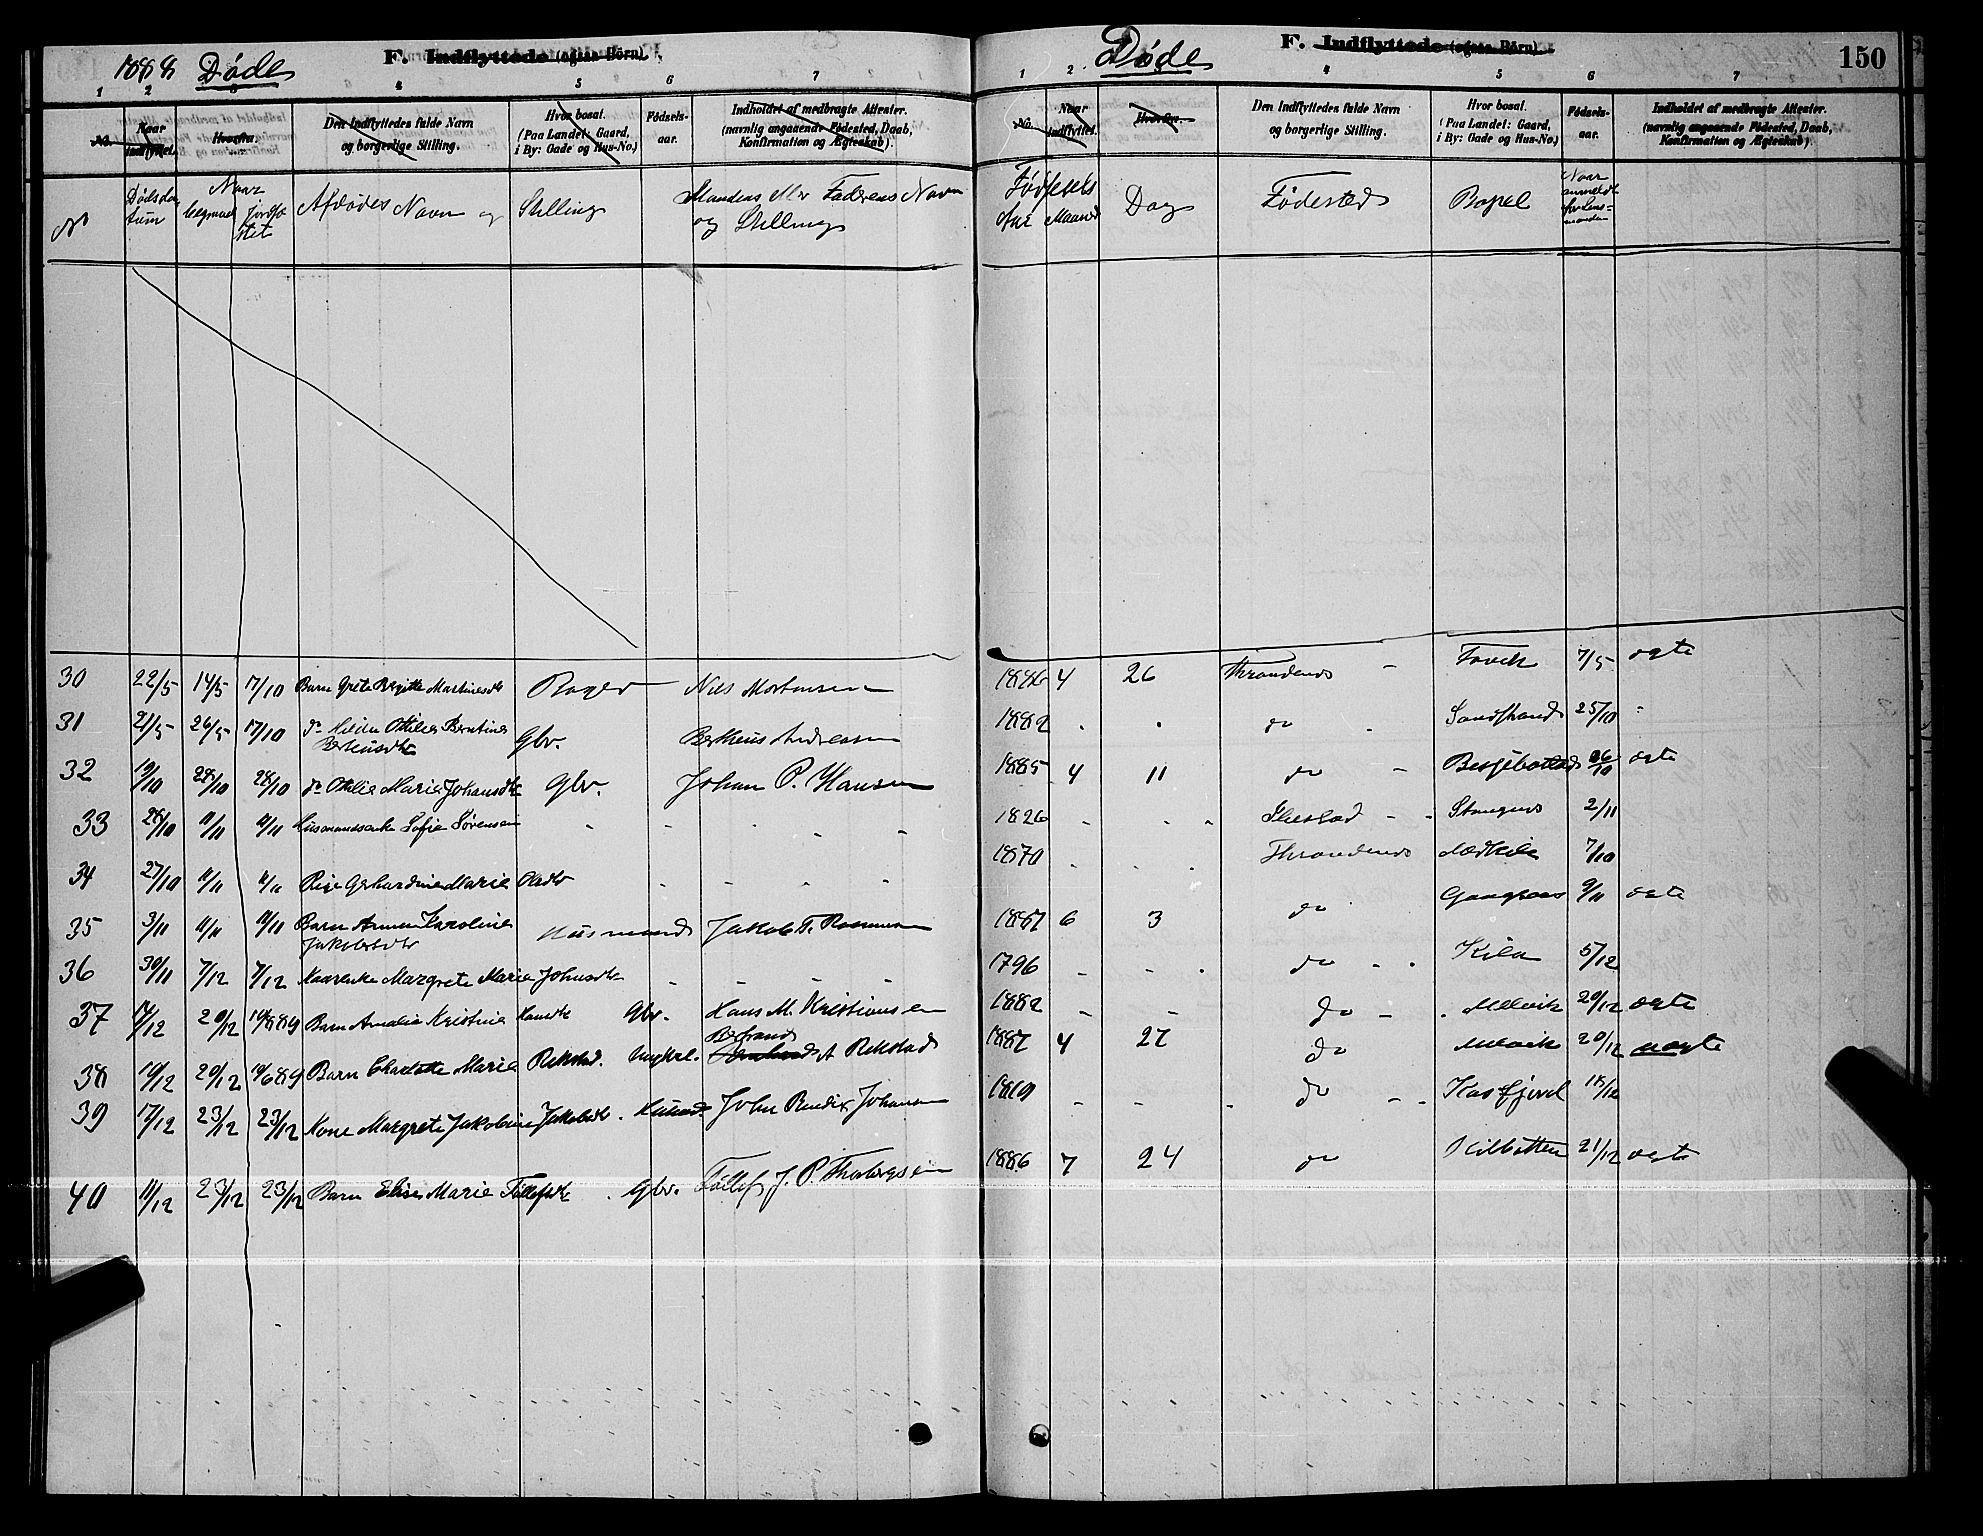 1888 Døde F. Indflyttede (ogsaa Börn).
1 2 3 4 5 6 7
No. Naar indflyttet. Hvorfra. Den Indflyttedes fulde Navn og borgerlige Stilling. Hvor bosat. (Paa Landet: Gaard, i By: Gade og Hus-No.) Fødsels-aar. Indholdet af medbragte Attester. (navnlig angaaende Födested, Daab, Konfirmation og Ægteskab).
N Dødsdatum Naar begravet jordfæstet Afdødes Navn og Stilling Mandens eller Faderens Navn og Stilling
30 22/5 14/5 17/10 Barn Grete Birgitte Martinesdtr Nils Mortensen
31 21/5 26/5 17/10 do Hilda Otilie Berntine Gbr. Bertheus Andreassen
32 19/10 28/10 28/10 do Otilie Marie Johansdtr Gbr. Johan P. Hansen
33 28/10 11/11 11/11 Husmandsenke Sofie Sørensen - - - -
34 27/10 11/11 11/11 Pige Gerhardine Marie Olsdtr - - - -
35 3/11 11/11 11/11 Barn Anna Karoline Jakobsdtr Husmand Jakob T. Rasmussen
36 30/11 7/12 7/12 Kaarenke Margrete Marie Johnsdtr - - - -
37 14/12 20/12 Barn Amalie Kristine Hansdtr Gbr. Hans M. Kristiansen
Bertrand
38 19/12 20/12 Barn Charlotte Marie Rekstad. Ungkrl. A Rekstad
39 17/12 23/12 23/12 Kone Margrete Jakobine Jakobsdtr. Husmd. John Bendix Johansen
40 11/12 23/12 23/12 Barn Elise Marie Tollefsdtr . Gbr. Tollef J. P. Thorbergsen
Døde F. Indflyttede (ogsaa Börn). 150
1 2. 4 5 6 7
No. Naar indflyttet. Hvorfra. Den Indflyttedes fulde Navn og borgerlige Stilling. Hvor bosat. (Paa Landet: Gaard, i By: Gade og Hus-No.) Fødsels-aar. Indholdet af medbragte Attester. (navnlig angaaende Födested, Daab, Konfirmation og Ægteskab).
Fødsels Aar Maaned Dag Fødested Bopel Naar anmeldt for Lensmanden
1886 4 26 Throndenes - 7/5 ægte
1882 . . do . Sandstrand 25/10 -
1885 4 11 do - 26/10 ægte
1826 - - - Ibestad - - Stangnes 2/11
1870 - - . Throndenes 7/10
1887 6 3 do Gangsaas 9/11 ægte
1796 - - . do - . Kila 5/12
1882 - - do - . Melvik 20/12 ægte
1887 4 27 do Melvik 20/12 uægte
1819 - - - do - - Kasfjord 18/12
1886 7 24 do Kilbotten 21/12 ægte